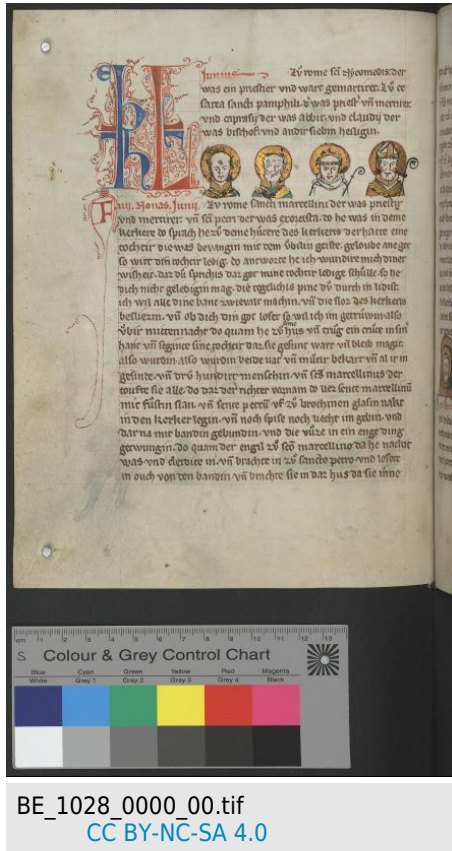 KL
Junius Zv rome sct Nycomedis der
was ein priester vnd wart gemartiret. Zv ce
sarea sancti pamphili. d was priest vn mertirer
vnd caprasy der was abbit. vnd claudij der
was bischof. vnd andir siebin heiligin.
F iiij. Nonas. Junij. Zv rome sancti marcellini der was priestir
vnd mertirer. vn sct petri der was exorcista. do he was in deme
kerkere do sprach he zv deme hutere des kerkeris der hatte eine
tochtir die was bevangin mit dem bosin geiste. geloube an got
so wirt din tochter ledig. do antworte he ich wundire mich diner
wisheit. daz dv sprichis daz got mine tochtir ledige schulle. so he
dich nicht geledigin mag. die pine dv durch in lidist.
ich wil alle dine bant machin. vn die sloz des kerkeris
besliezin. vn ob dich din got loset so wil ich im getruwin. also
vbir mittennacht do quam he zv sime hus vn trug ein cruce in sin
hant vn seginte sine tochtir daz sie gesunt wart vn bleib magit
also wurdin also wurdin beide vat vn mutir bekart vn al ir in
gesinde. vn dru hundirt menschin. vn scs marcellinus der
toufte sie alle. do daz der richter vornam do liez sente marcellinu
mit fustin slan. vn sente petru vf zv brochinen glasin nakt
in den kerker legin. vn noch spise noch liecht im gebin. vnd
dar na mit bandin gebundin. vnd die vuze in ein enge ding
getwungin. do quam der engil zv sco marcellino da he nackit
was vnd cleidite in. vn brachte in zv sancto petro. vnd losete
in ouch von den bandin vn brachte sie in daz hus da sie inne
cm 1 2 3 4 5 6 7 8 9 10 11 12 13
Colour & Grey Control Chart
Blue Cyan Green Yellow Red Magenta
White Grey 1 Grey 2 Grey 3 Grey 4 Black
BE_1028_0000_00.tif
CC BY-NC-SA 4.0